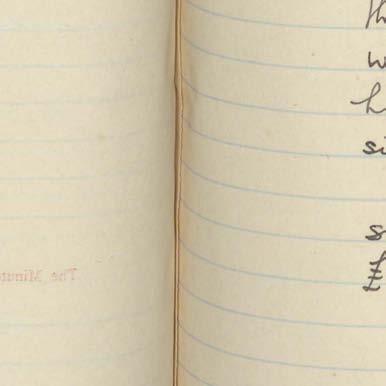 The Minut
th
w
h
si
s
£